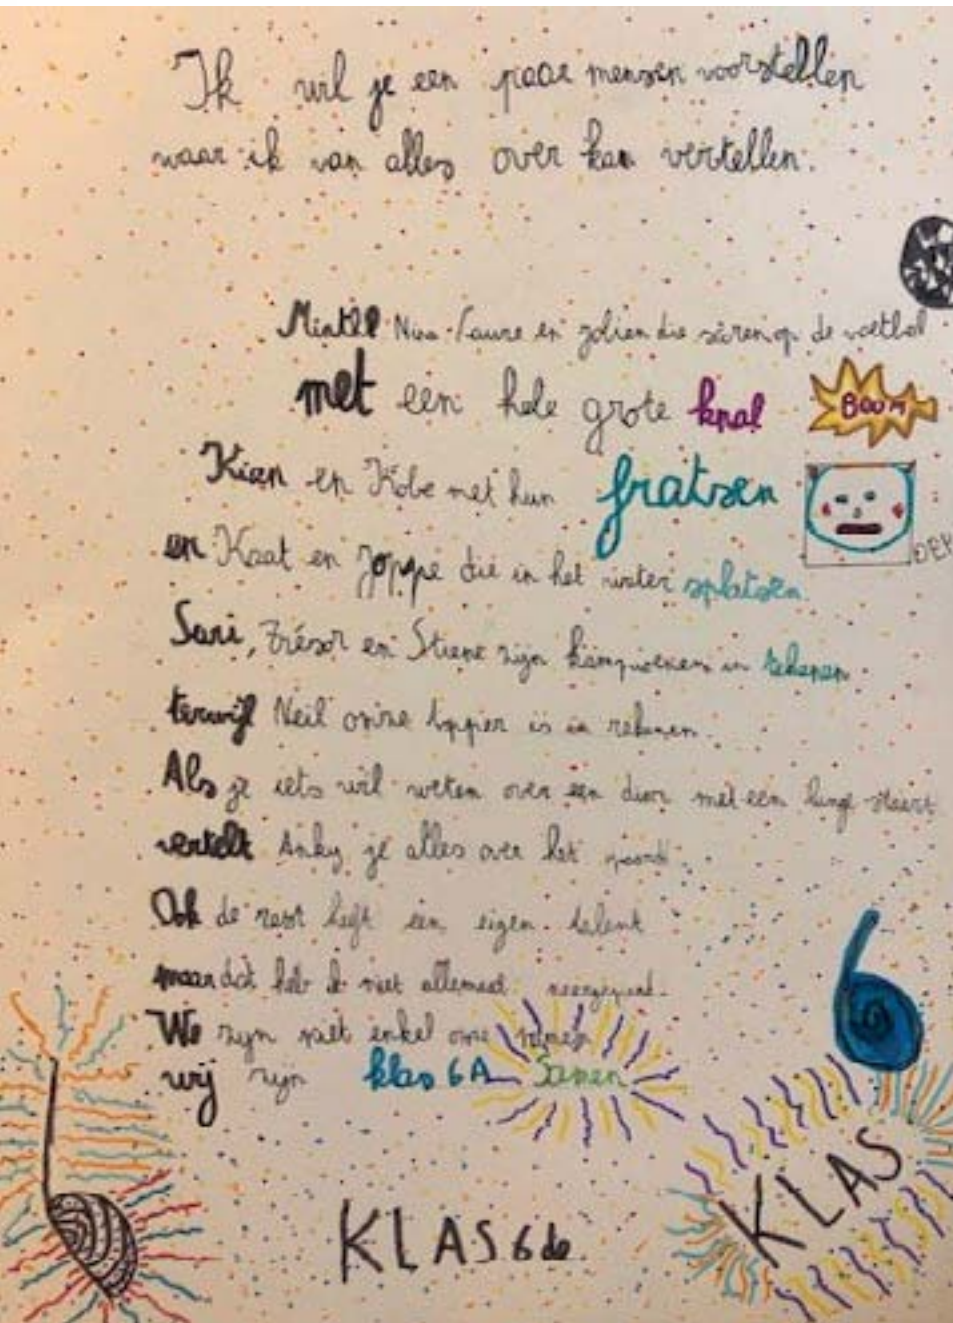 Ik wil je een paar mensen voorstellen
waar ik van alles over kan vertellen.
Nina Laure en Jolien die scoren op de voetbal
met een hele grote knal
BOOM
Kian en Kobe met hun fratsen
en Kaat en Joppe die in het water splatsen
Sari, Trésor en Stiene zijn kampioenen in tekenen
terwijl Neil onze topper is in rekenen.
Als je iets wil weten over een dier met een lange staart
vertelt Anky je alles over het paard.
Ook de rest heeft een eigen talent
maar dat heb ik niet allemaal neergepend.
We zijn niet enkel one namen
wij zijn klas 6A Samen
6
KLAS
KLAS 6de